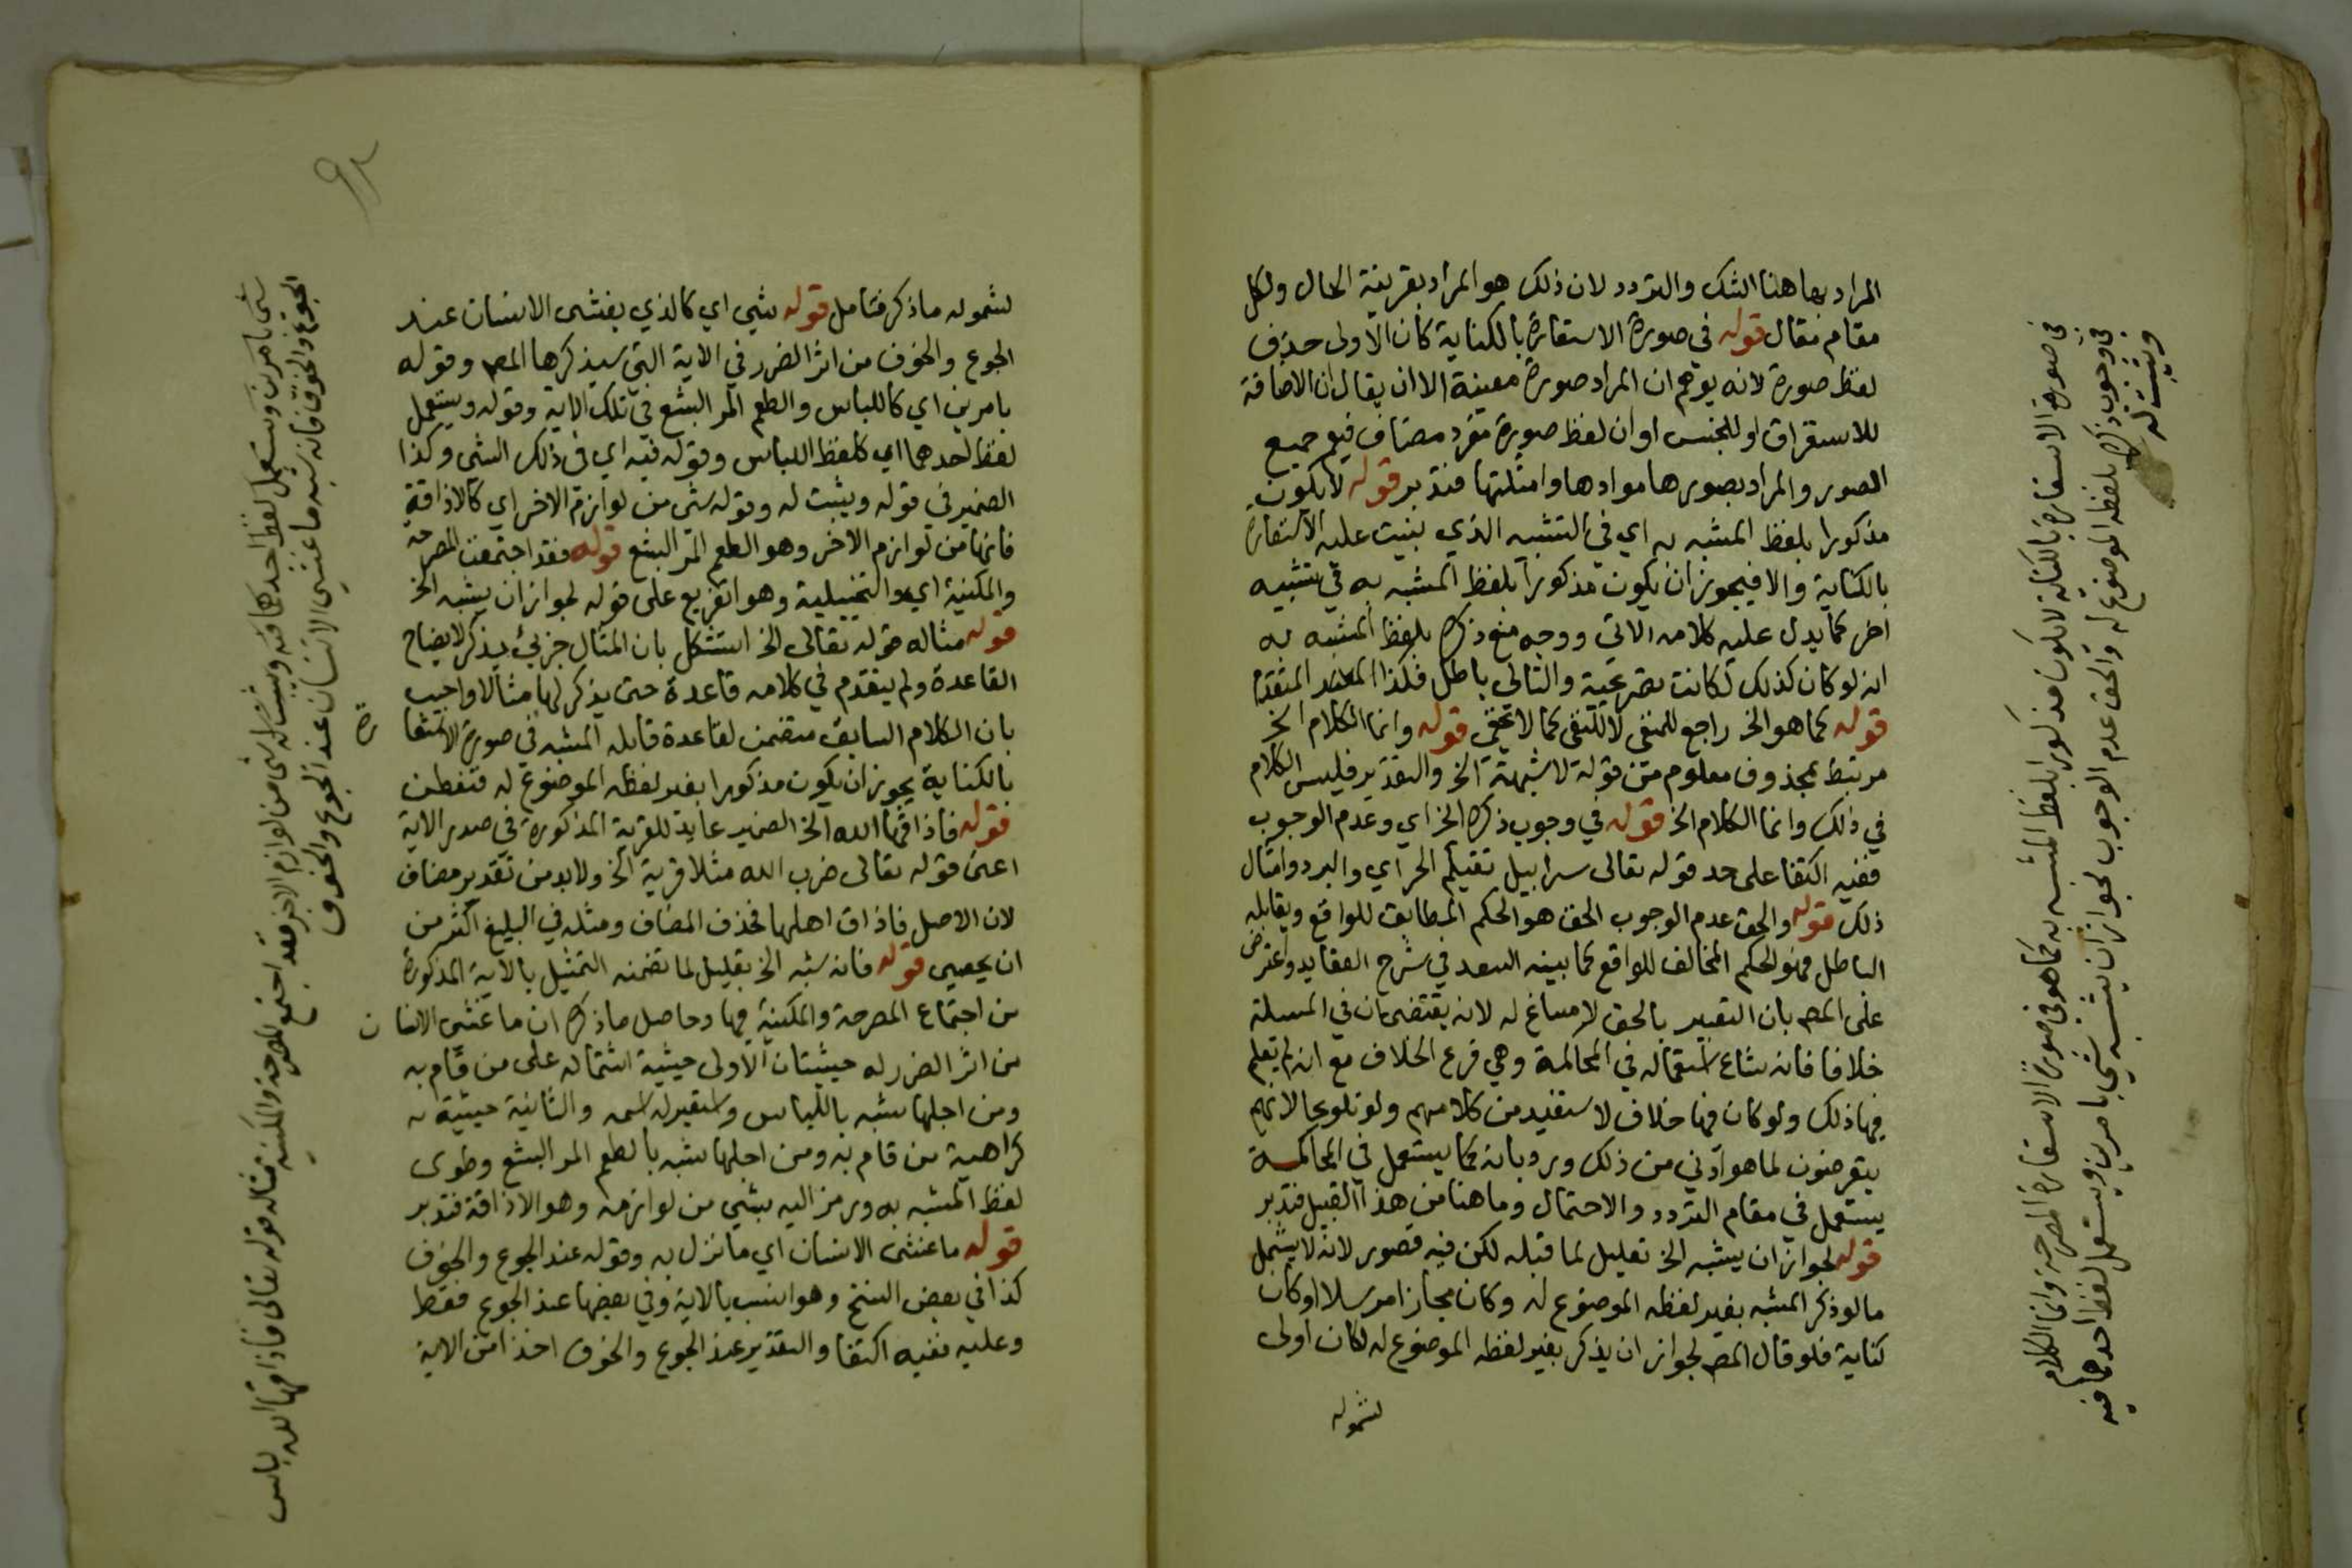 المراد بها هنا الشك والتردد لان ذلك هو المراد بقرينة الحال ولكل
مقام مقال قوله في صورة الاستعارة بالكناية كان الاولى حذف
لفظ صورة لانه يوهم ان المراد صورة معينة الا ان يقال ان الاضافة
للاستغراق او للجنس او ان لفظ صورة مفرد مضاف فيعم جميع
الصور والمراد بصورها موادها وامثلتها فتدبر قوله لا يكون
مذكورا بلفظ المشبه به اي في التشبيه الذي بنيت عليه الاستعارة
بالكناية والا فيجوز ان يكون مذكورا بلفظ المشبه به في تشبيه
اخر كما يدل عليه كلامه الاتي ووجه منع ذكره بلفظ المشبه به
انه لو كان كذلك لكانت تصريحية والتالي باطل فكذا المقدم
قوله كما هو الخ راجع للمنفي لا للنفي كما لا يخفى قوله وانما الكلام الخ
مرتبط بمحذوف معلوم من قوله لا شبهة الخ والتقدير فليس الكلام
في ذلك وانما الكلام الخ قوله في وجوب ذكره الخ اي وعدم الوجوب
ففيه اكتفا على حد قوله تعالى سرابيل تقيكم الحر اي والبرد وامثال
ذلك قوله والحق عدم الوجوب الحق هو الحكم المطابق للواقع ويقابله
الباطل فهو الحكم المخالف للواقع كما بينه السعد في شرح العقايد واعترض
على المص بان التعبير بالحق لا مساغ له لانه يقتضى ان في المسئلة
خلافا فانه شاع استعماله في المحاكمة وهي فرع الخلاف مع انه لم يعلم
فيها ذلك ولو كان فيها خلاف لاستفيد من كلامهم ولو تلويحا لانهم
يتعرضون لما هو ادنى من ذلك ورد بانه كما يستعمل في المحاكمة
يستعمل في مقام التردد والاحتمال وما هنا من هذا القبيل فتدبر
قوله لجواز ان يشبه الخ تعليل لما قبله لكن فيه قصور لانه لا يشمل
ما لو ذكر المشبه بغير لفظه الموضوع له وكان مجازا مرسلا او كان
كناية فلو قال المص لجواز ان يذكر بغير لفظه الموضوع له لكان اولى
لشموله
في صورة الاستعارة بالكناية لا يكون مذكورا بلفظ المشبه به كما هو في صورة الاستعارة المصرحة وانما الكلام
في وجوب ذكره بلفظه الموضوع له والحق عدم الوجوب لجواز ان يشبه شي بامرين ويستعمل لفظ احدهما فيه
ويثبت له
لشموله ما ذكر فتامل قوله شي اي كالذي يغشى الانسان عند
الجوع والخوف من اثر الضرر في الاية التي سيذكرها المص وقوله
بامرين اي كاللباس والطعم المر البشع في تلك الاية وقوله ويستعمل
لفظ احدهما اي كلفظ اللباس وقوله فيه اي في ذلك الشى وكذا
الضمير في قوله ويثبت له وقوله شى من لوازم الاخر اي كالاذاقة
فانها من لوازم الاخر وهو الطعم المر البشع قوله فقد اجتمعت المصرحة
والمكنية اي والتخييلية وهو تفريع على قوله لجواز ان يشبه الخ
قوله مثاله قوله تعالى الخ استشكل بان المثال جزئي يذكر لايضاح
القاعدة ولم يتقدم في كلامه قاعدة حتى يذكر لها مثالا واجيب
بان الكلام السابق متضمن لقاعدة قايلة المشبه في صورة الاستعارة
بالكناية يجوز ان يكون مذكورا بغير لفظه الموضوع له فتفطن
قوله فاذاقها الله الخ الضمير عايد للقرية المذكورة في صدر الاية
اعنى قوله تعالى ضرب الله مثلا قرية الخ ولا بد من تقدير مضاف
لان الاصل فاذاق اهلها فحذف المضاف ومثله في البليغ اكثر من
ان يحصى قوله فانه شبه الخ تعليل لما تضمنه التمثيل بالاية المذكورة
من اجتماع المصرحة والمكنية فيها وحاصل ما ذكره ان ما غشى الانسان
من اثر الضرر له حيثيتان الاولى حيثية اشتماله على من قام به
ومن اجلها شبه باللباس واستعير له اسمه والثانية حيثية
كراهية من قام به ومن اجلها شبه بالطعم المر البشع وطوى
لفظ المشبه به ورمز اليه بشي من لوازمه وهو الاذاقة فتدبر
قوله ما غشى الانسان اي ما نزل به وقوله عند الجوع والخوف
كذا في بعض النسخ وهو انسب بالاية وفي بعضها عند الجوع فقط
وعليه ففيه اكتفا والتقدير عند الجوع والخوف اخذا من الاية
شى بامرين ويستعمل لفظ احدهما فيه ويثبت له شى من لوازم الاخر فقد اجتمع المصرحة والمكنية مثاله قوله تعالى فاذاقها الله لباس
الجوع والخوف فانه شبه ما غشى الانسان عند الجوع والخوف